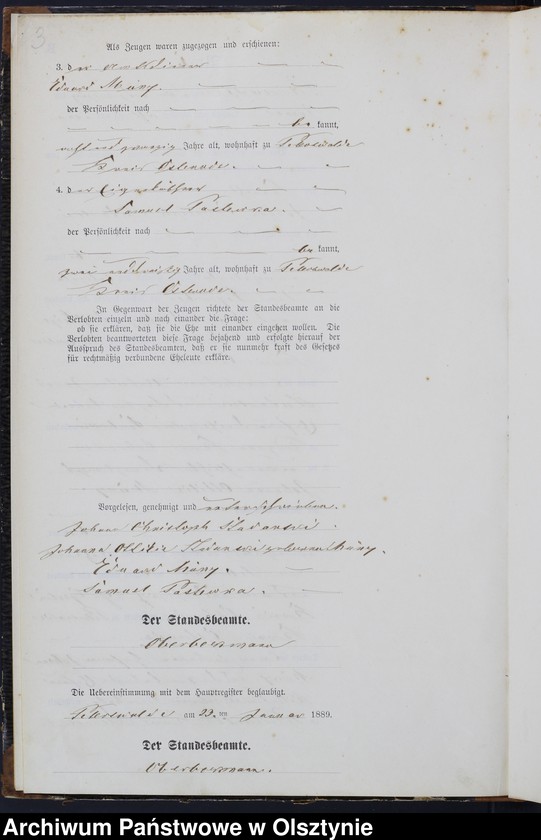 3
Als Zeugen waren zugezogen und erschienen:
3. der
Eduard Münz
der Persönlichkeit nach
be kannt,
acht und zwanzig Jahre alt, wohnhaft zu Peterswalde
Kreis Osterode.
4. der Eigenkäthner
Samuel
der Persönlichkeit nach
be kannt,
zwei und dreißig Jahre alt, wohnhaft zu Peterswalde
Kreis Osterode.
In Gegenwart der Zeugen richtete der Standesbeamte an die
Verlobten einzeln und nach einander die Frage:
ob sie erklären, daß sie die Ehe mit einander eingehen wollen. Die
Verlobten beantworteten diese Frage bejahend und erfolgte hierauf der
Ausspruch des Standesbeamten, daß er sie nunmehr kraft des Gesetzes
für rechtmäßig verbundene Eheleute erkläre.
Vorgelesen, genehmigt und unterschrieben.
Johann Christoph
Johanna Ottilie geborene Münz.
Eduard Münz.
Samuel
Der Standesbeamte.
Oberbessmann
Die Uebereinstimmung mit dem Hauptregister beglaubigt.
Peterswalde am 22. ten Januar 1889.
Der Standesbeamte.
Oberbessmann.
Archiwum Państwowe w Olsztynie